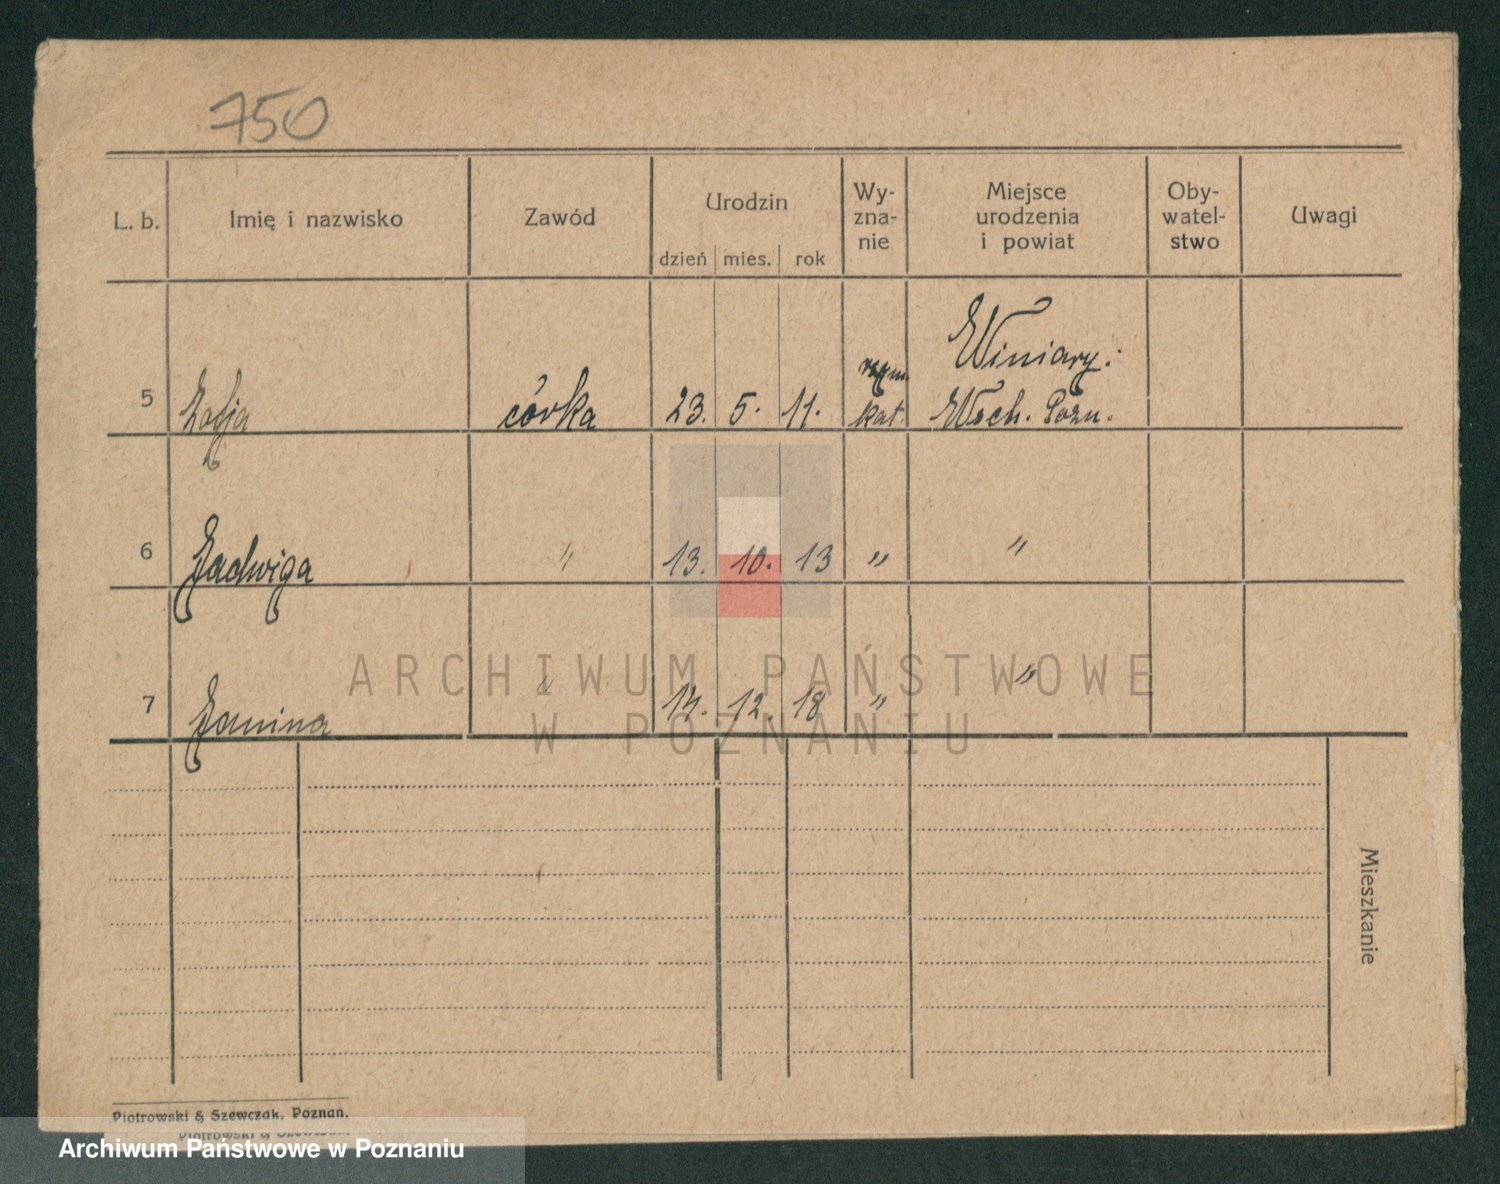 750
L. b. Imię i nazwisko Zawód Urodzin Wy- zna- nie Miejsce urodzenia i powiat Oby- watel- stwo Uwagi
dzień mies. rok
5 Zofja córka 23. 5. 11. rzym. kat. Winiary. Wsch. Pozn.
6 Jadwiga " 13. 10. 13 " "
7 Janina " 14. 12. 18 " "
ARCHIWUM PAŃSTWOWE
W POZNANIU
Mieszkanie
Piotrowski & Szewczak, Poznań.
Piotrowski & Szewczak,
Archiwum Państwowe w Poznaniu